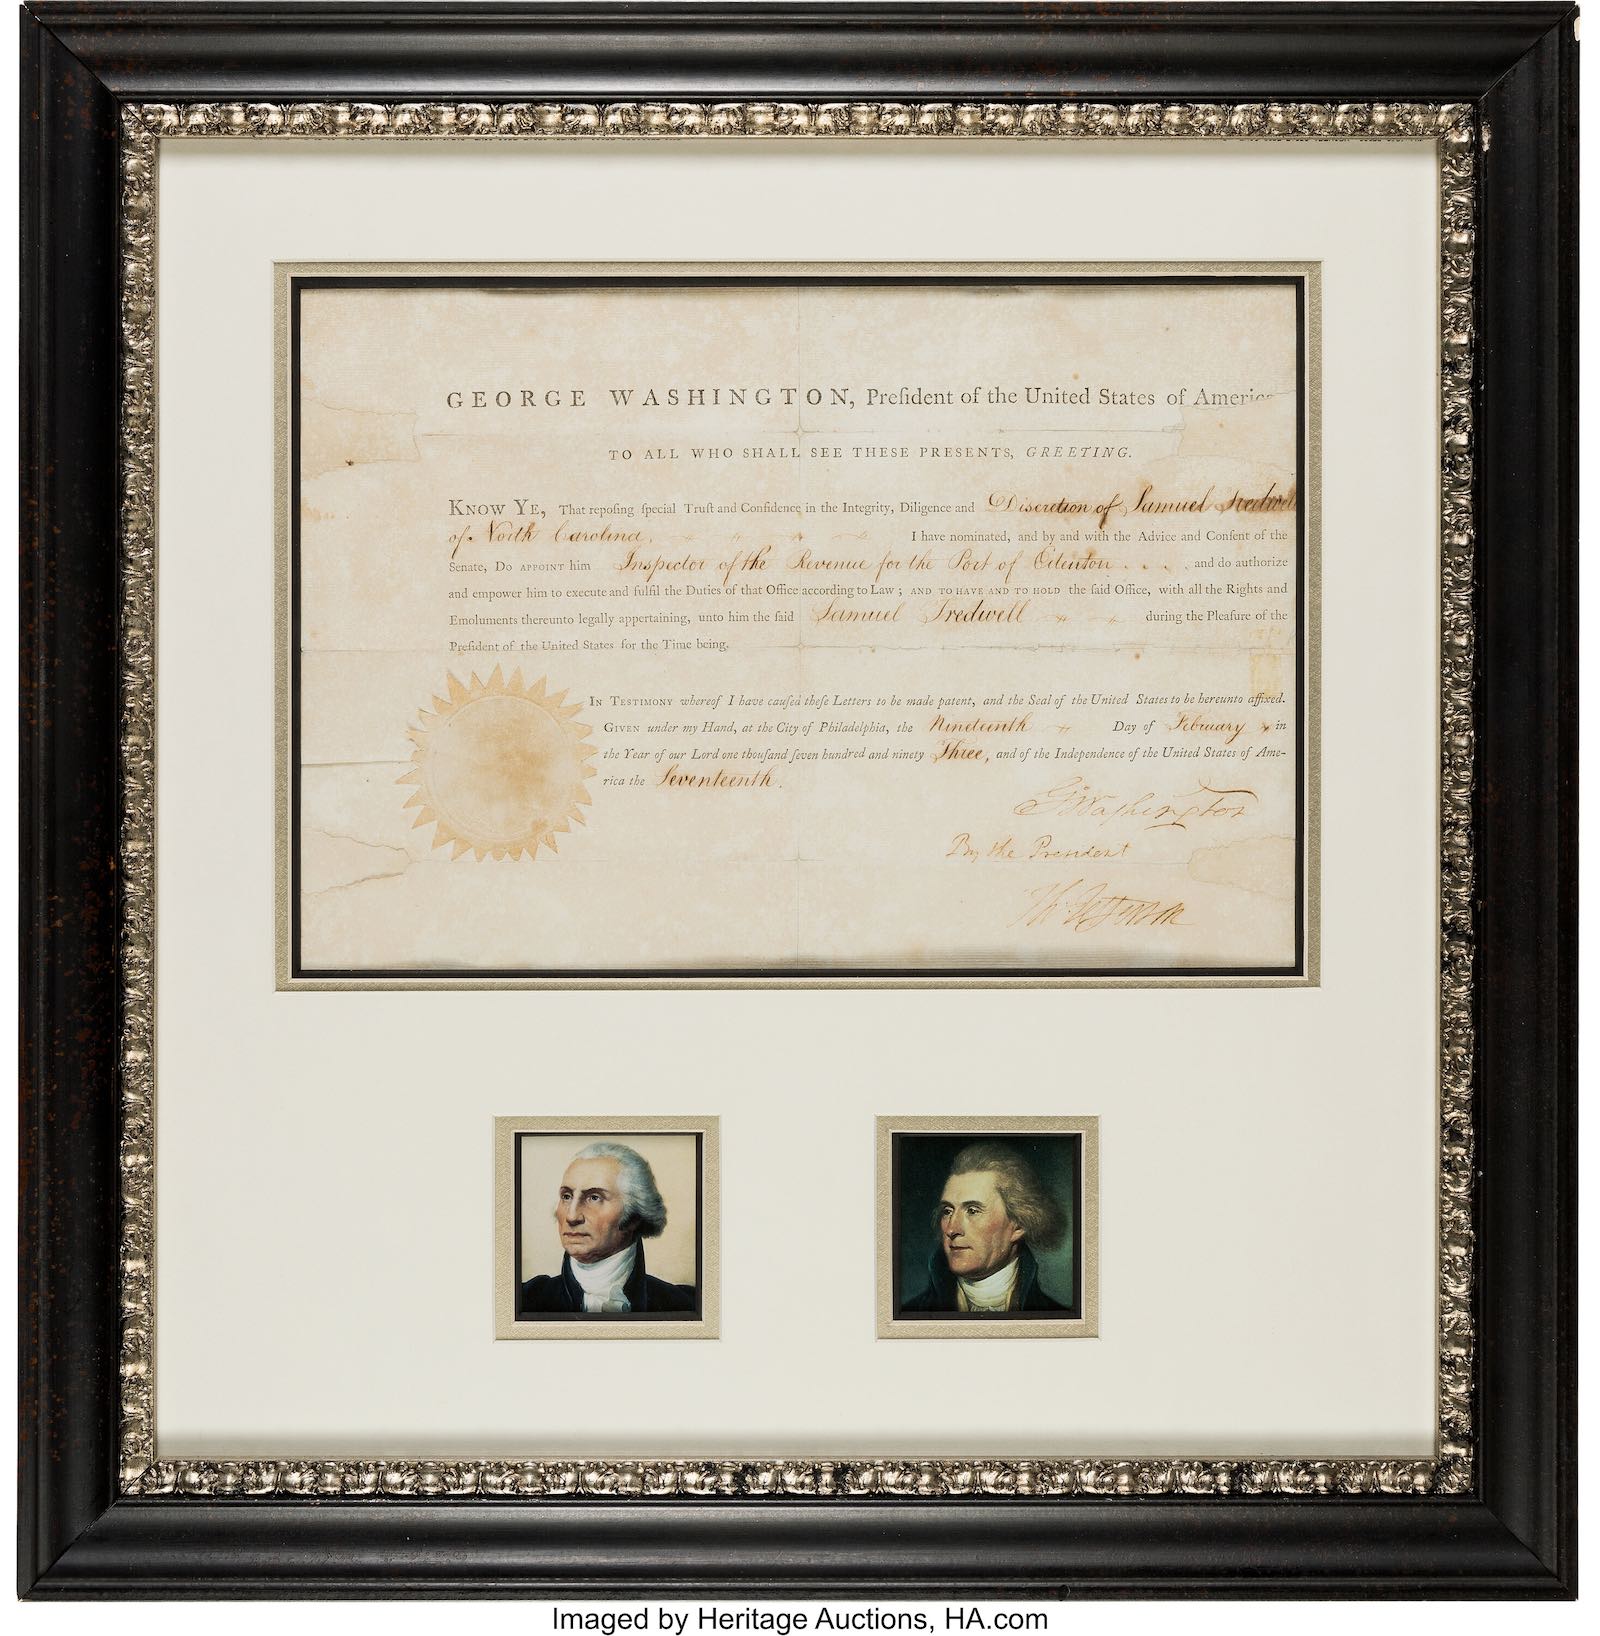 GEORGE WASHINGTON, Preſident of the United States of America
TO ALL WHO SHALL SEE THESE PRESENTS, GREETING.
KNOW YE, That repoſing ſpecial Truſt and Confidence in the Integrity, Diligence and Discretion of Samuel Tredwell
of North Carolina, I have nominated, and by and with the Advice and Conſent of the
Senate, DO APPOINT him Inspector of the Revenue for the Port of Edenton . . . . and do authorize
and empower him to execute and fulfil the Duties of that Office according to Law ; AND TO HAVE AND TO HOLD the ſaid Office, with all the Rights and
Emoluments thereunto legally appertaining, unto him the ſaid Samuel Tredwell during the Pleaſure of the
Preſident of the United States for the Time being.
IN TESTIMONY whereof I have cauſed theſe Letters to be made patent, and the Seal of the United States to be hereunto affixed.
GIVEN under my Hand, at the City of Philadelphia, the Nineteenth Day of February in
the Year of our Lord one thouſand ſeven hundred and ninety Three, and of the Independence of the United States of Ame-
rica the Seventeenth.
G Washington
By the President
Th: Jefferson
Imaged by Heritage Auctions, HA.com